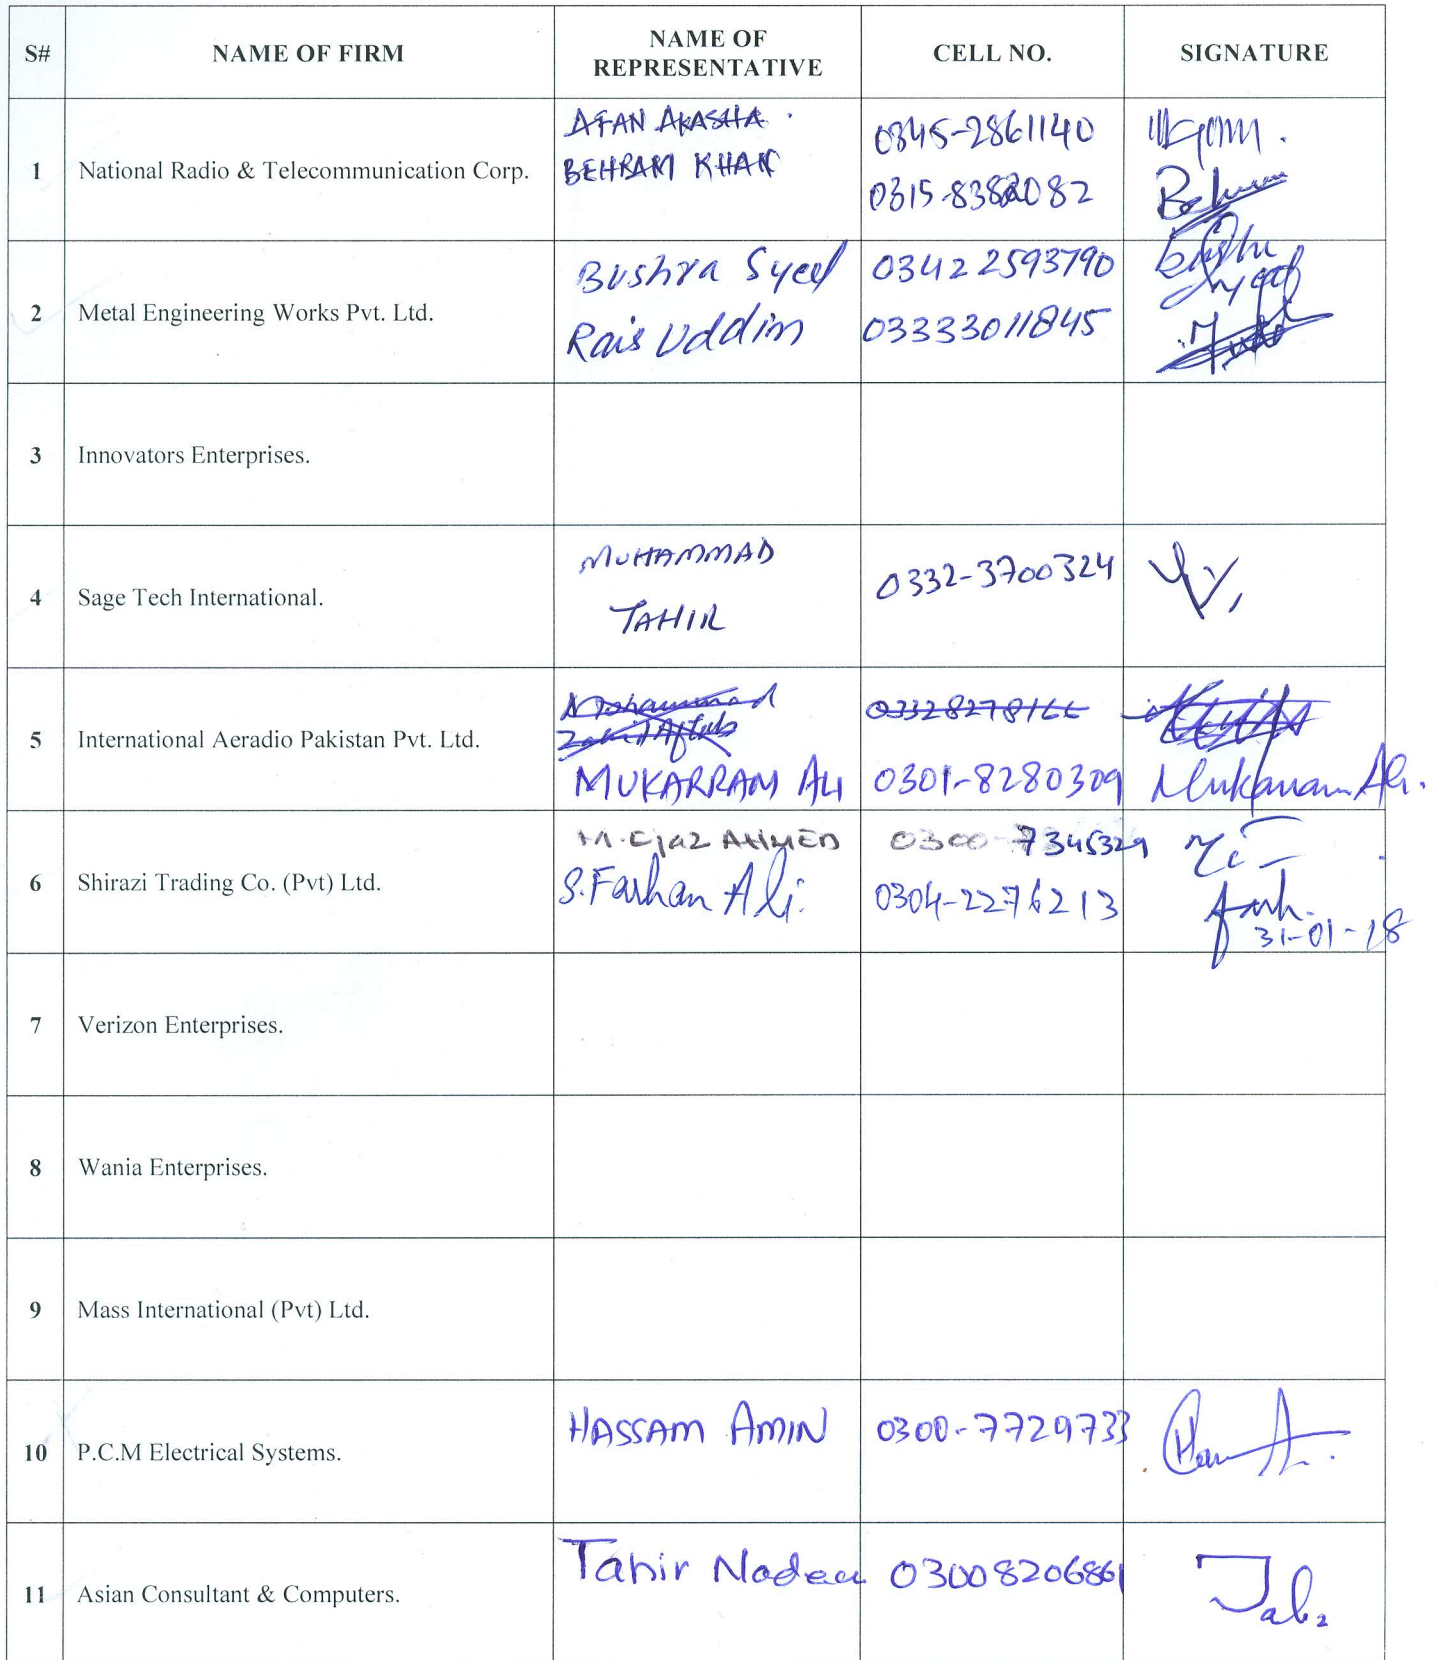 S# NAME OF FIRM NAME OF REPRESENTATIVE CELL NO. SIGNATURE
1 National Radio & Telecommunication Corp.
AFAN AKASHA 0345-2861140
BEHRAM KHAN 0315-8382082
2 Metal Engineering Works Pvt. Ltd.
Bushra Syed 03422593790
Rais Uddin 03333011845
3 Innovators Enterprises.
4 Sage Tech International.
MUHAMMAD 0332-3700324
TAHIR
5 International Aeradio Pakistan Pvt. Ltd.
Mohammad 03328278166
MUKARRAM Ali 0301-8280309 Mukarram Ali.
6 Shirazi Trading Co. (Pvt) Ltd.
M. Ejaz AHMED 0300-7345329
S. Farhan Ali. 0304-2276213
31-01-18
7 Verizon Enterprises.
8 Wania Enterprises.
9 Mass International (Pvt) Ltd.
10 P.C.M Electrical Systems.
HASSAM AMIN 0300-7729733
11 Asian Consultant & Computers.
Tahir Nadeem 03008206861